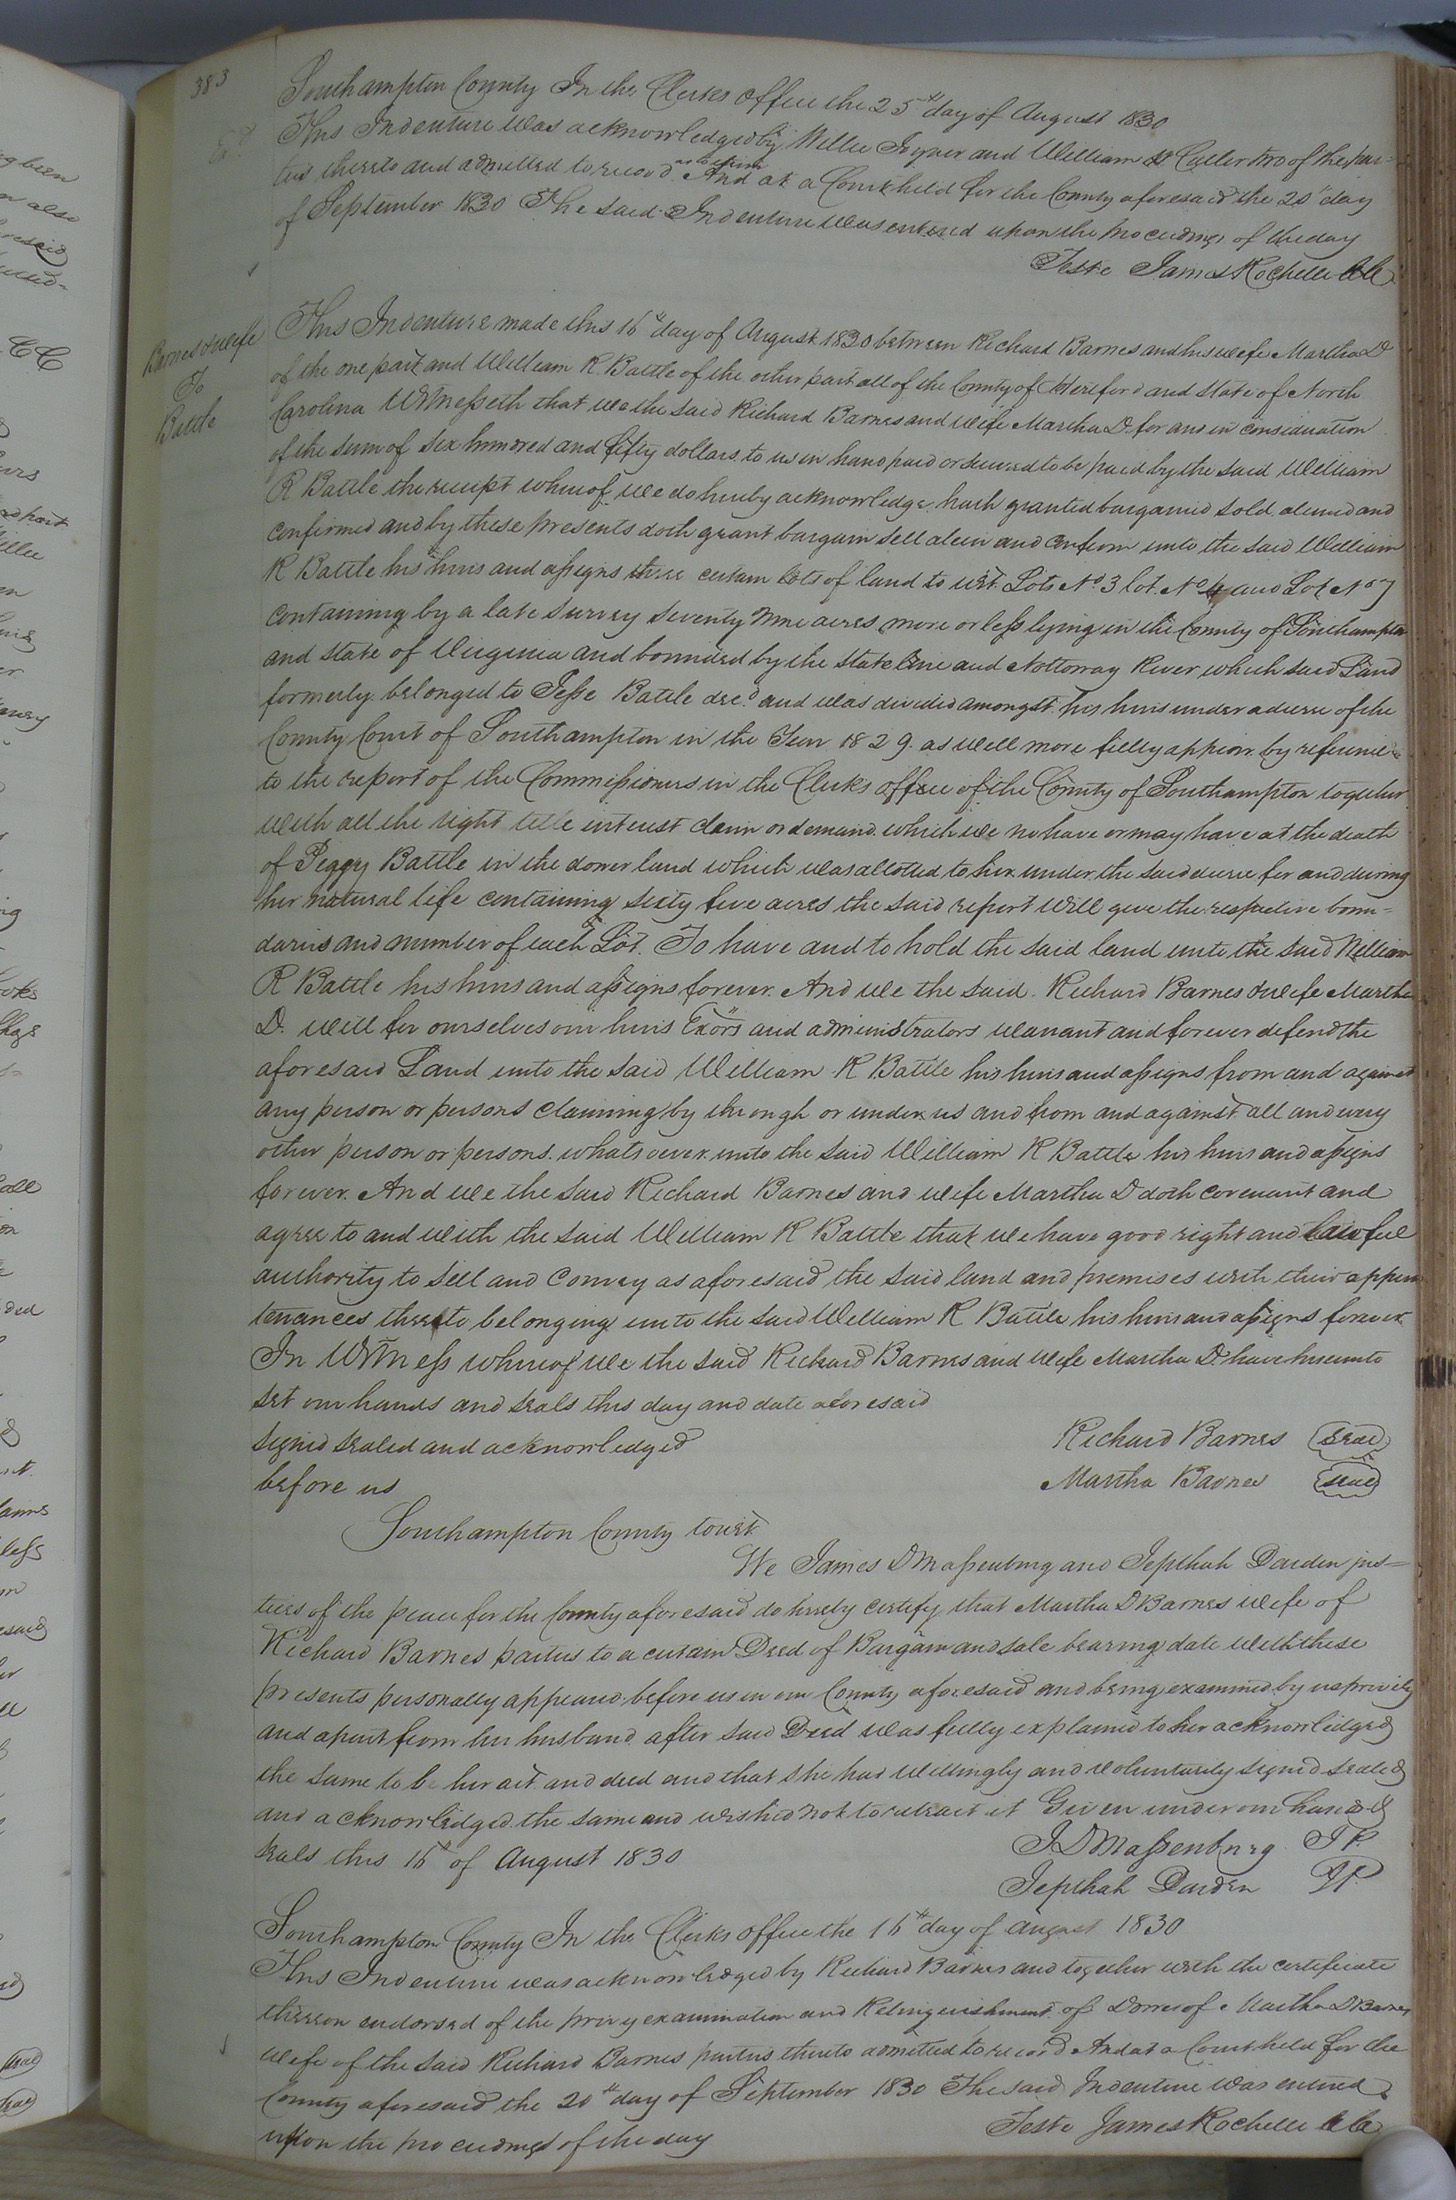 383
Southampton County In the Clerks office the 25th day of August 1830
This Indenture was acknowledged by Willie Joyner and William D Cutler two of the par-
ties thereto and admitted to record as to them And at a Court held for the County aforesaid the 20th day
of September 1830 The said Indenture was entered upon the proceedings of the day
Teste James Rochelle
Barnes & wife
To
Battle
This Indenture made this 16th day of August 1830 between Richard Barnes and his wife Martha D
of the one part and William R Battle of the other part all of the County of Hereford and State of North
Carolina Witnesseth that we the said Richard Barnes and wife Martha D. for and in consideration
of the sum of six hundred and fifty dollars to us in hand paid or secured to be paid by the said William
R Battle the receipt whereof we do hereby acknowledge hath granted bargained sold aliened and
confirmed and by these presents doth grant bargain sell alien and confirm unto the said William
R Battle his heirs and assigns three certain lots of land to wit. Lots No. 3 lot No 4 and Lot No 7
containing by a late survey seventy nine acres more or less lying in the County of Southampton
and State of Virginia and bounded by the State line and Nottoway River which said Land
formerly belonged to Jesse Battle decd. and was divided amongst his heirs under a decree of the
County Court of Southampton in the Year 1829. as will more fully appear by reference
to the report of the Commissioners in the Clerks office of the County of Southampton together
with all the right title interest claim or demand which we no have or may have at the death
of Peggy Battle in the dower land which was allotted to her under the said decree for and during
her natural life containing sixty five acres the said report will give the respective boun-
daries and number of each Lot. To have and to hold the said land unto the said William
R Battle his heirs and assigns forever. And we the said Richard Barnes & wife Martha
D. will for ourselves our heirs Exors and administrators warrant and forever defend the
aforesaid Land unto the said William R Battle his heirs and assigns from and against
any person or persons claiming by through or under us and from and against all and every
other person or persons whatsoever unto the said William R Battle his heirs and assigns
forever. And we the said Richard Barnes and wife Martha D doth covenant and
agree to and with the said William R Battle that we have good right and lawful
authority to sell and convey as aforesaid the said land and premises with their appur
tenances thereto belonging unto the said William R Battle his heirs and assigns forever.
In Witness whereof we the said Richard Barnes and wife Martha D. have hereunto
set our hands and seals this day and date aforesaid
signed sealed and acknowledged
before us
Richard Barnes (seal)
Martha Barnes (seal)
Southampton County towit
We James D Massenburg and Jepthah Darden jus-
tices of the peace for the County aforesaid do hereby certify that Martha D Barnes wife of
Richard Barnes parties to a certain Deed of Bargain and sale bearing date with these
presents personally appeared before us in our County aforesaid and being examined by us privily
and apart from her husband after said Deed was fully explained to her acknowledged
the same to be her act and deed and that she had willingly and voluntarily signed sealed
and acknowledged the same and wished not to retract it Given under our hands &
seals this 16th of August 1830
J. D Massenburg J P.
Jepthah Darden J P.
Southampton County In the Clerks office the 16th day of August 1830
This Indenture was acknowledged by Richard Barnes and together with the certificate
thereon endorsed of the privy examination and Relinquishment of Dower of Martha D Barnes
wife of the said Richard Barnes parties thereto admitted to record And at a Court held for the
County aforesaid the 20th day of September 1830 The said Indenture was entered
upon the proceedings of the day
Teste James Rochelle